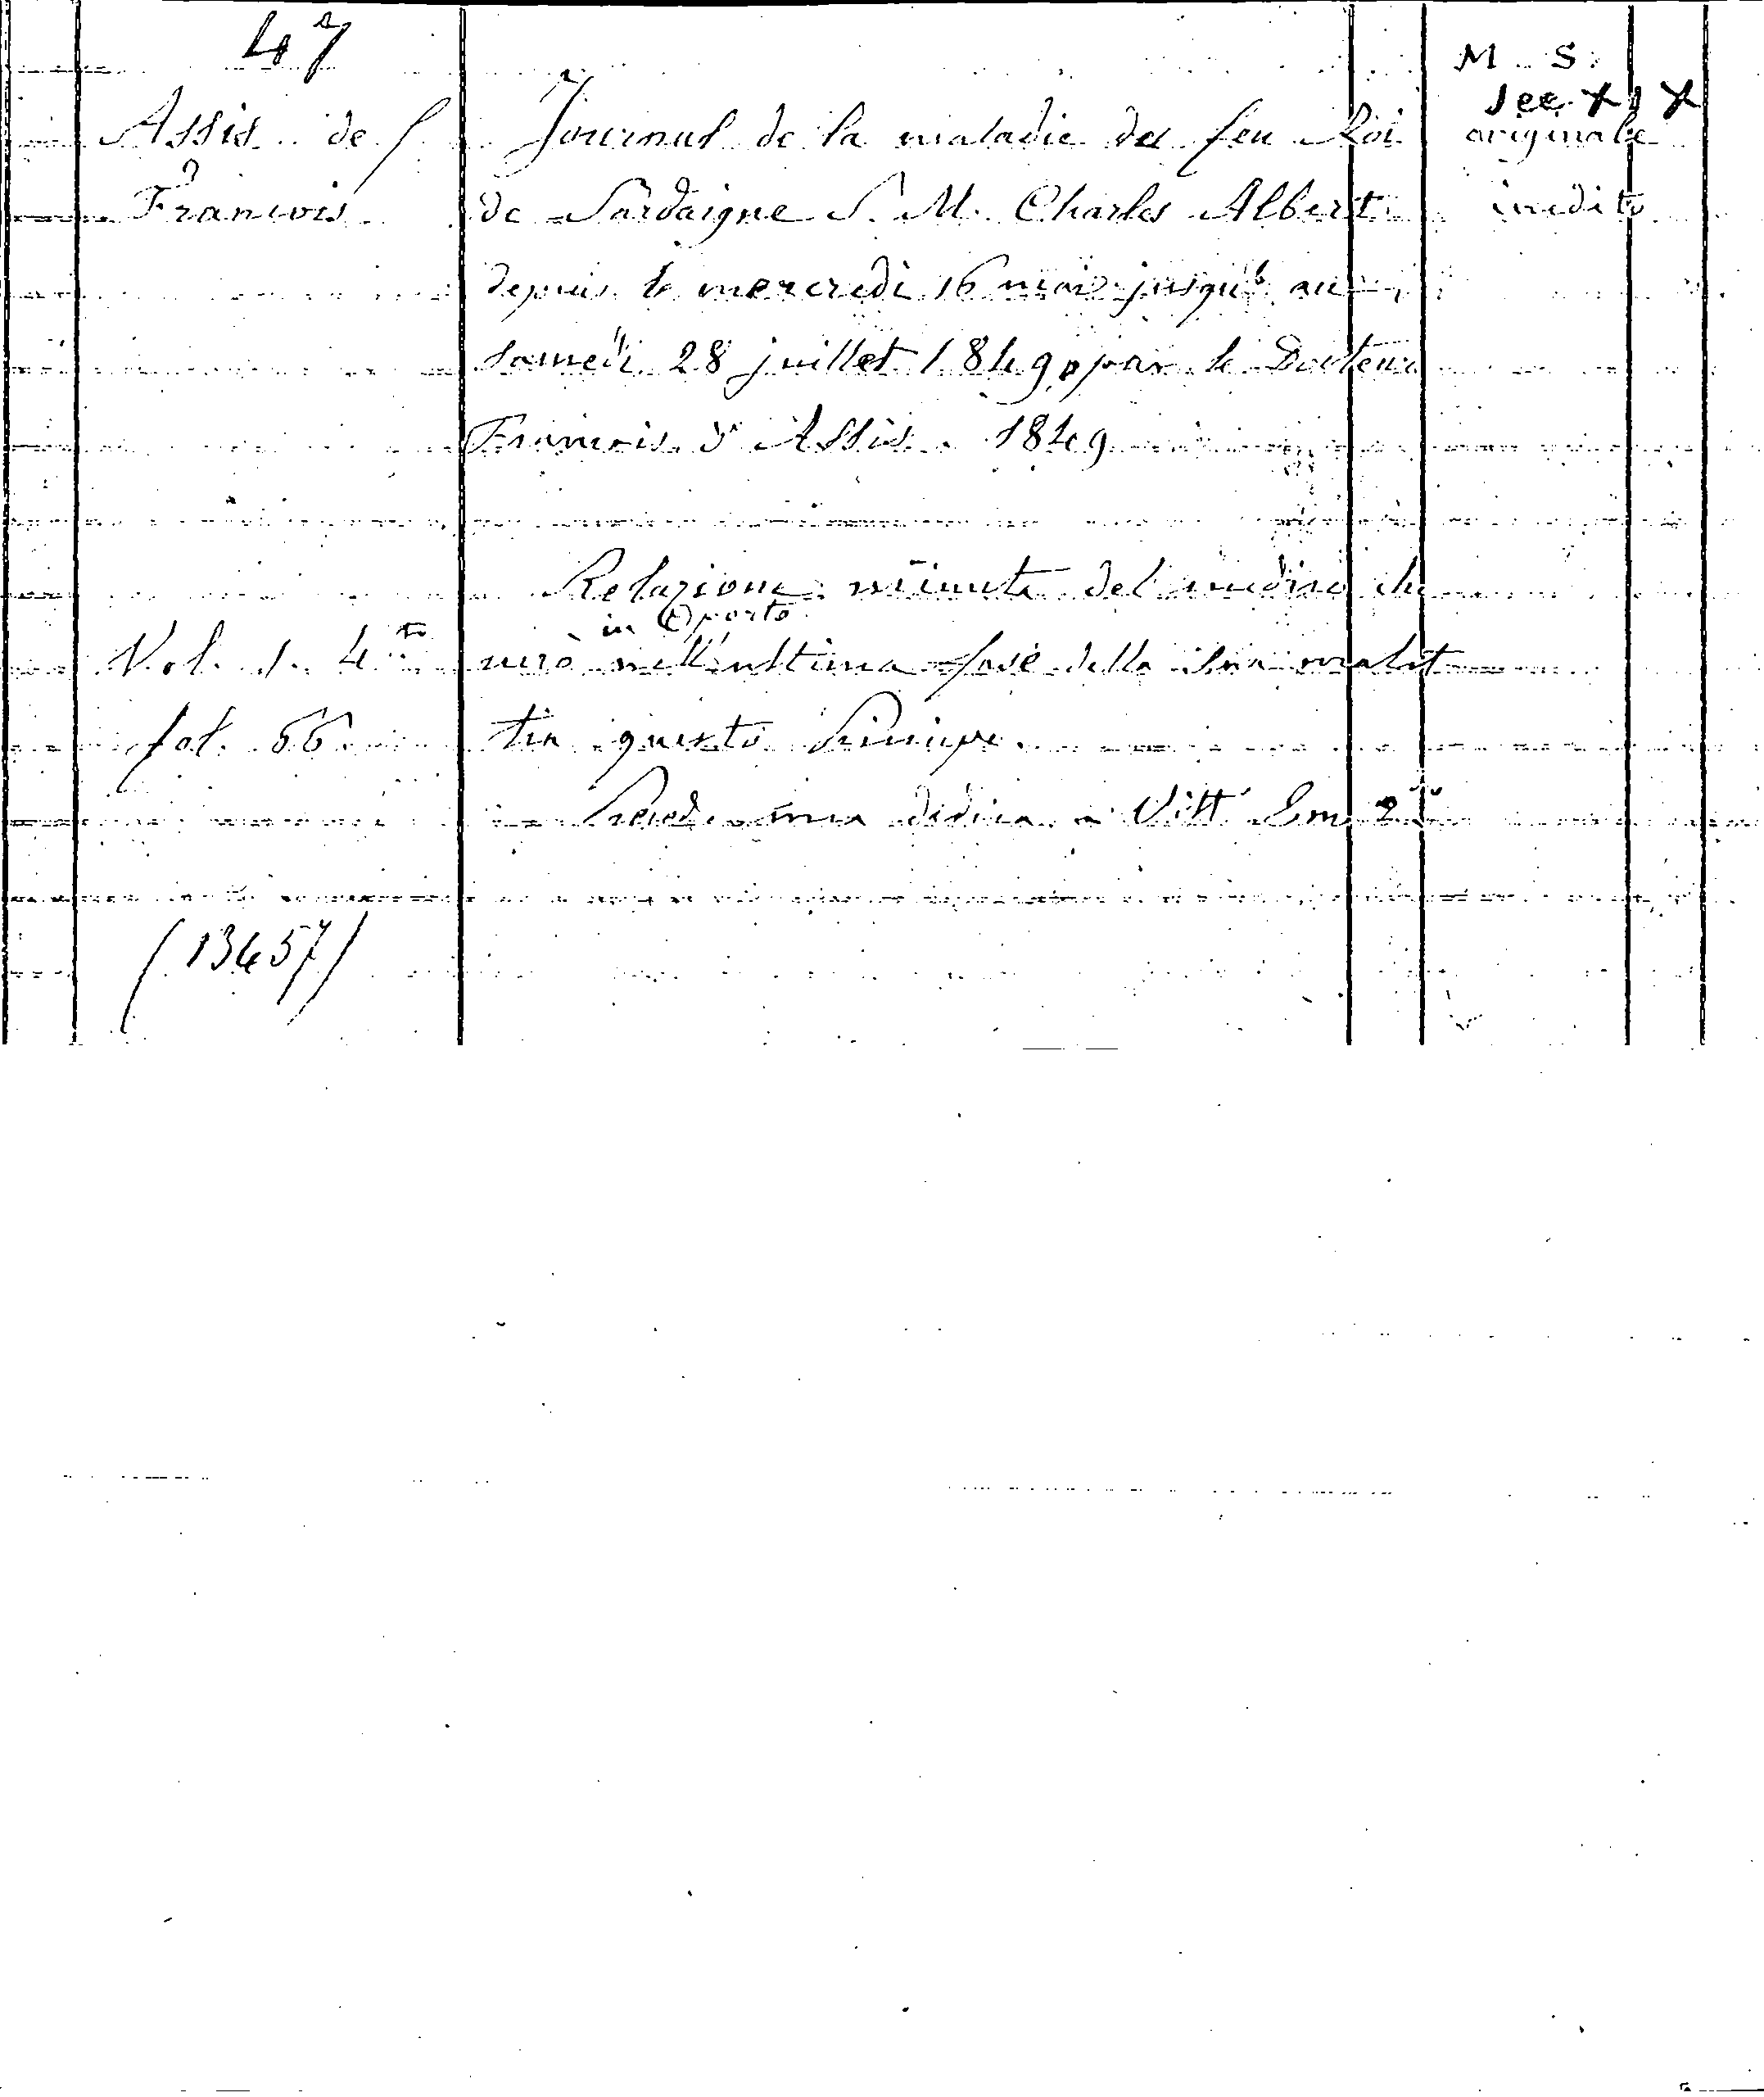 47
M. S.
Sec. XIX
Assis de S.
François
originale
inedito
Journal de la maladie du feu Roi
de Sardaigne S. M. Charles Albert
depuis le mercredi 16 mai jusqu'à au
samedi 28 juillet 1849, par le Docteur
François d'Assis. 1849
Relazione minuta del medico che
in Oporto
curò nell'ultima fase della sua malat
tia questo Principe.
Preced. una dedica a Vitt. Em. 2do
Vol. 1. 4to
fol. 66
(13457)